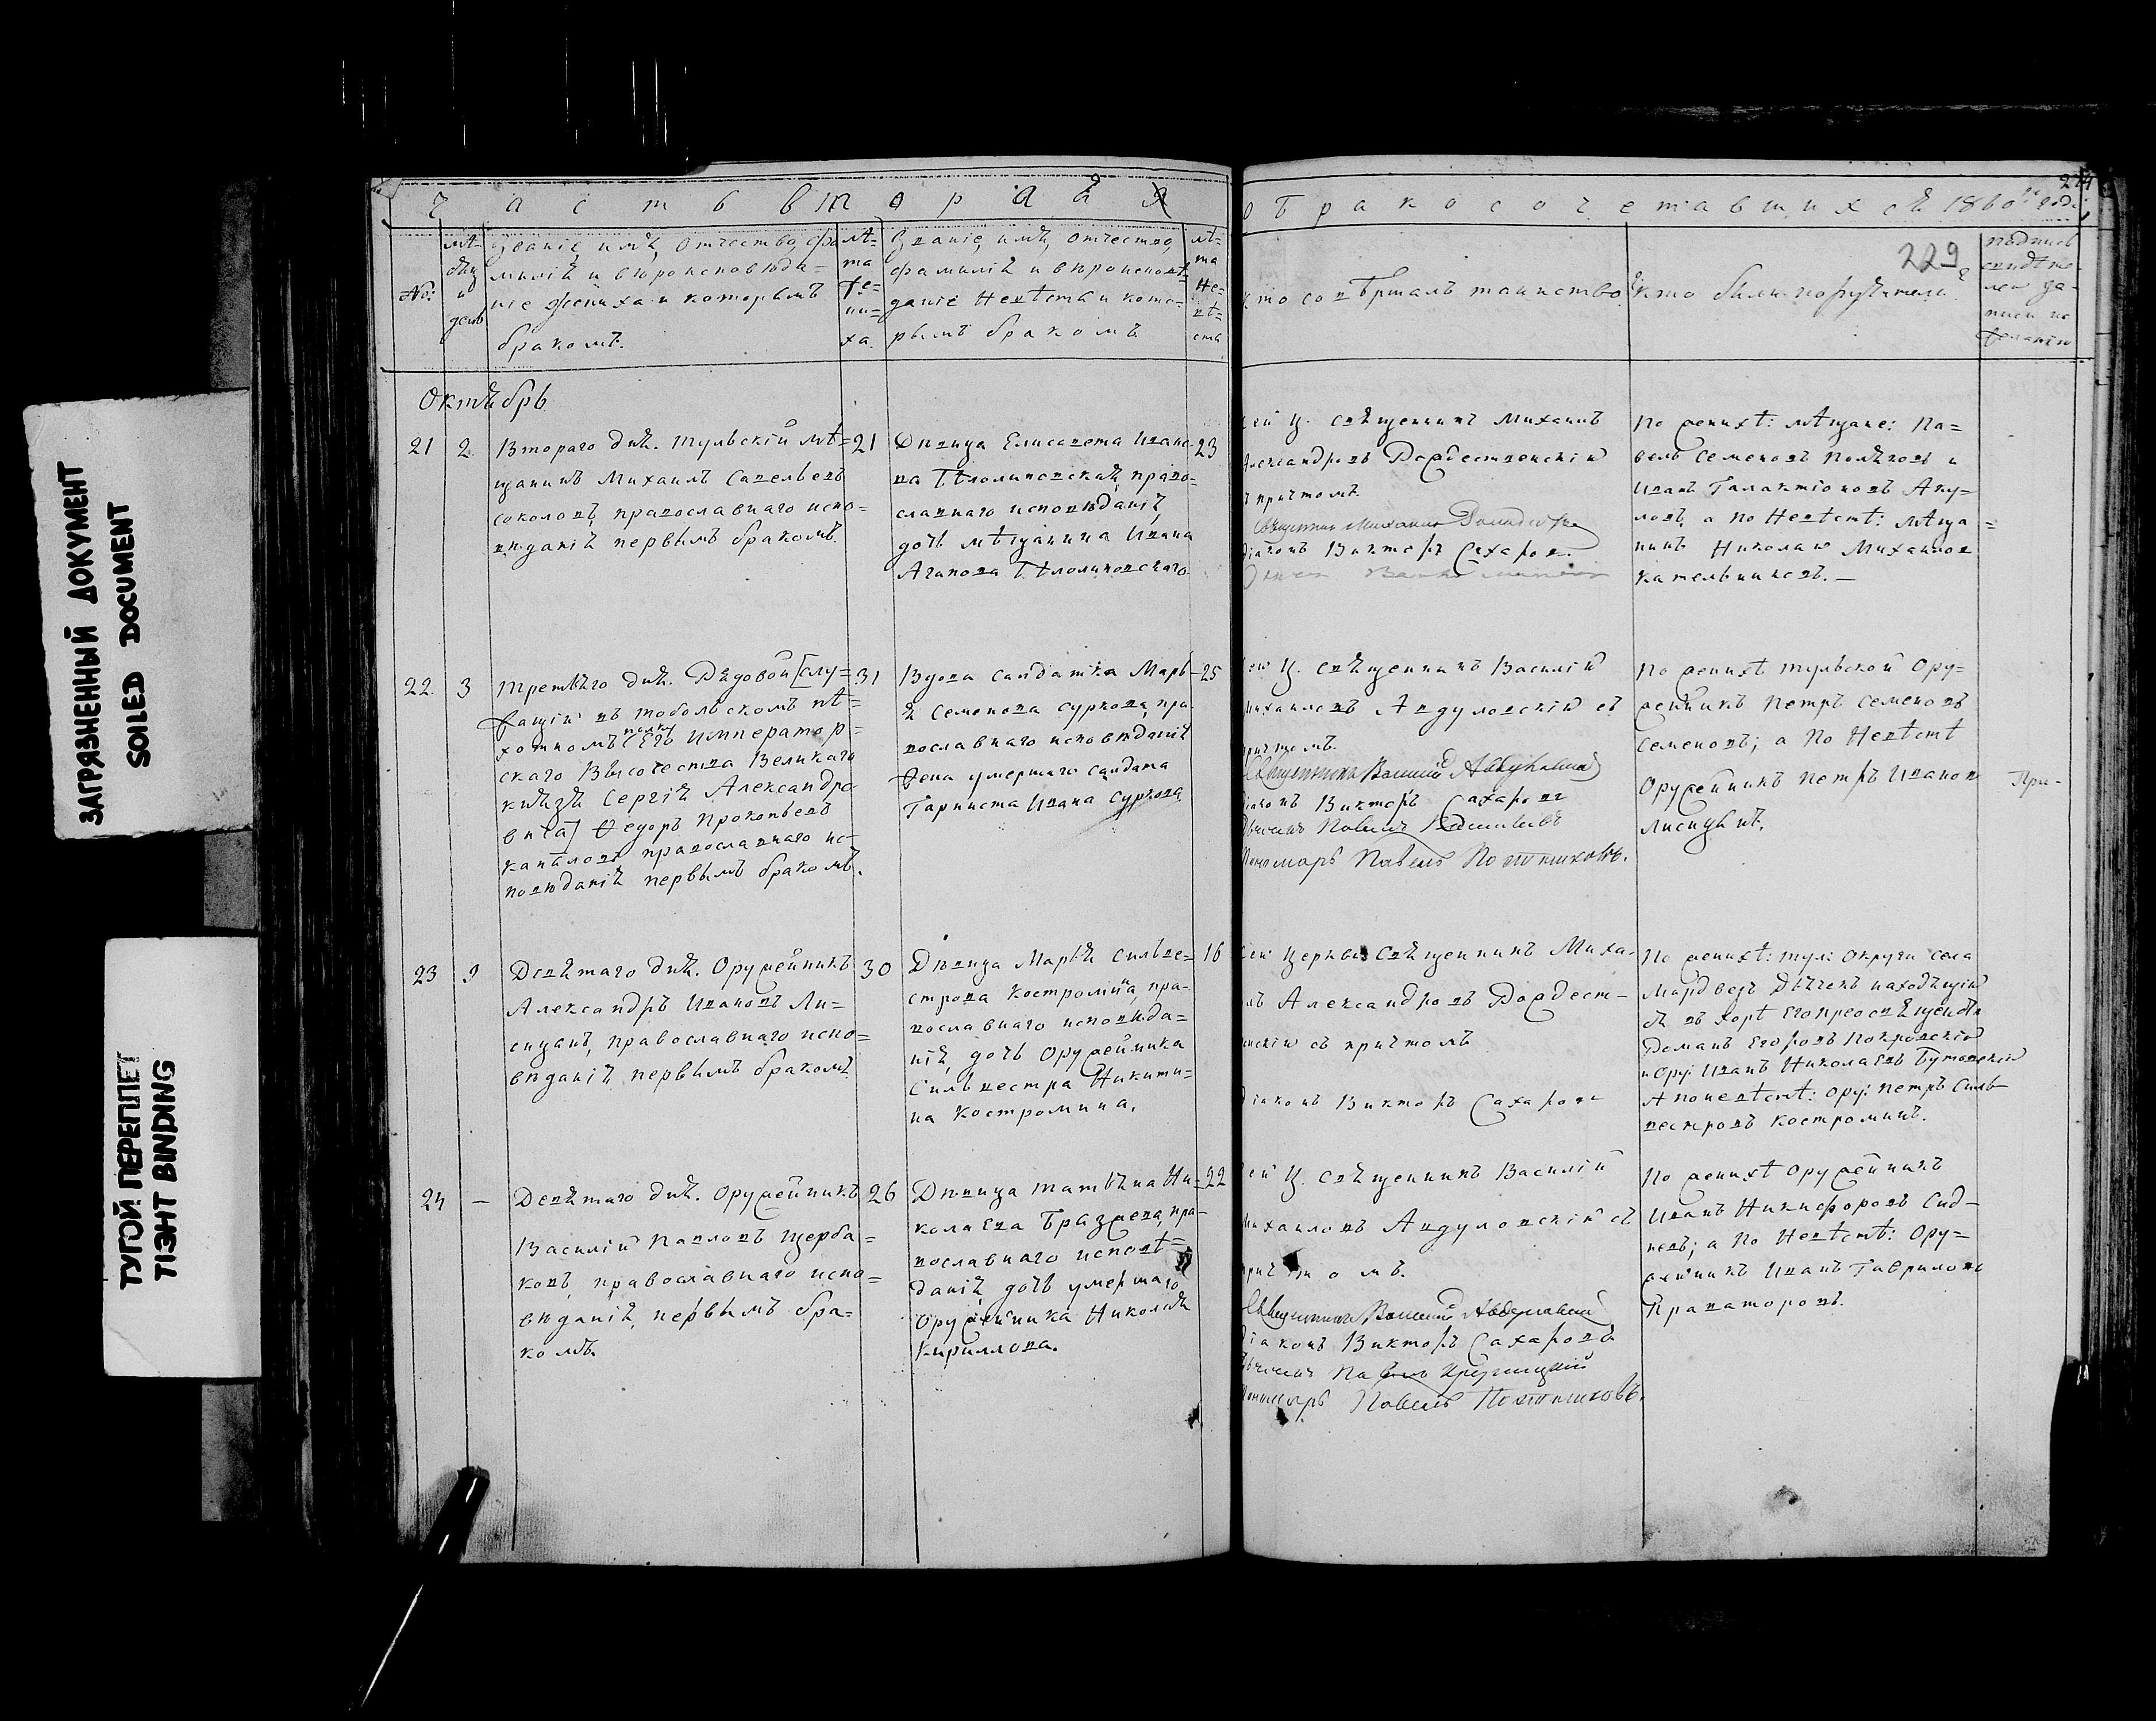 ЗАГРЯЗНЕННЫЙ ДОКУМЕНТ
SOILED DOCUMENT
ТУГОЙ ПЕРЕПЛЕТ
TIGHT BINDING
Часть вторая
о бракосочетавшихся 1860го года
229
№:
Мѣсяц и день
Званіе, имя, отчество, фа
милія и вѣроисповѣда=
ніе жениха и которымъ
бракомъ.
лѣ=
та
же=
ни=
ха.
Званіе, имя, отчество,
фамилія и вѣроисповѣ=
даніе невѣсты и кото=
рымъ бракомъ
лѣ=
та
не=
вѣ=
сты
кто совѣршалъ таинство.
кто были поручители.
подпись
свидѣте-
лей за-
писи по
желанію
Октябрь
21
2
Втораго дня. Тульскій мѣ=
щанинъ Михаилъ Савельевъ
Соколовъ, православнаго испо=
вѣданія первымъ бракомъ.
21
Дѣвица Елисавета Ивано
православнаго исповѣданія,
дочь мѣщанина Ивана
23
сей ц. священникъ Михаилъ
Александровъ Рождественскій
съ причтомъ.
Діаконъ Викторъ Сахаров.
По женихѣ: мѣщане: Па=
велъ Семеновъ Поляковъ и
Иванъ Галактіоновъ Аку=
ловъ, а по невѣстѣ: мѣща=
нинъ Николай Михайлов
Кательниковъ.—
22.
3
Третьяго дня. Рядовой [слу=
жащій въ Тобольскомъ пѣ=
хотномъ полку Его Император=
скаго Высочества Великаго
Князя Сергія Александро
вича] Ѳедоръ Прокопьевъ
православнаго ис=
повѣданія первымъ бракомъ.
31
Вдова салдатка Марь
я Семенова Суркова, пра
вославнаго исповѣданія
жена умершаго салдата
Гарниста Ивана Суркова
25
сей ц. священникъ Василій
Михайловъ Авдуловскій съ
причтомъ.
Священникъ Василій Авдуловскій
Діаконъ Викторъ Сахаровъ
Пономарь Павелъ Постниковъ.
По женихѣ тульской ору=
жейникъ Петръ Семеновъ
Семеновъ; а по невѣстѣ
Оружейникъ Петръ Иванов
Лисицынъ.
При-
23
9
Девятаго дня. Оружейникъ
Александръ Ивановъ Ли=
сицынъ, православнаго испо=
вѣданія, первымъ бракомъ.
30
Дѣвица Марья Сильве=
строва Костромина, пра-
вославнаго исповѣда=
нія, дочь Оружейника
Сильвестра Никити=
на Костромина.
16
сей церкви священникъ Миха-
илъ Александровъ Рождест-
венскій съ причтомъ
Діаконъ Викторъ Сахаров
По женихѣ: тул: округи села
Мордвезъ Дьячекъ находящій
ся въ хорѣ Его преосвященства
Романъ Егоровъ Покровскій
и Ору: Иванъ Николаевъ Бутовскій
А по невѣстѣ: Ору: Петръ Силь
вестровъ Костроминъ.
24
—
Девятаго дня. Оружейникъ
Василій Павловъ Щерба=
ковъ, православнаго испо=
вѣданія, первымъ бра-
комъ.
26
Дѣвица Татьяна Ни-
колаева, пра-
вославнаго исповѣ=
данія, дочь умершаго
оружейника Николая
Кириллова.
22
сей ц. священникъ Василій
Михайловъ Авдуловскій съ
причтомъ.
Священникъ Василій Авдуловскій
Діаконъ Викторъ Сахаровъ
Пономарь Павелъ Постниковъ.
По женихѣ Оружейникъ
Иванъ Никифоровъ Сид-
невъ; а по невѣстѣ: Ору=
жейникъ Иванъ Гавриловъ